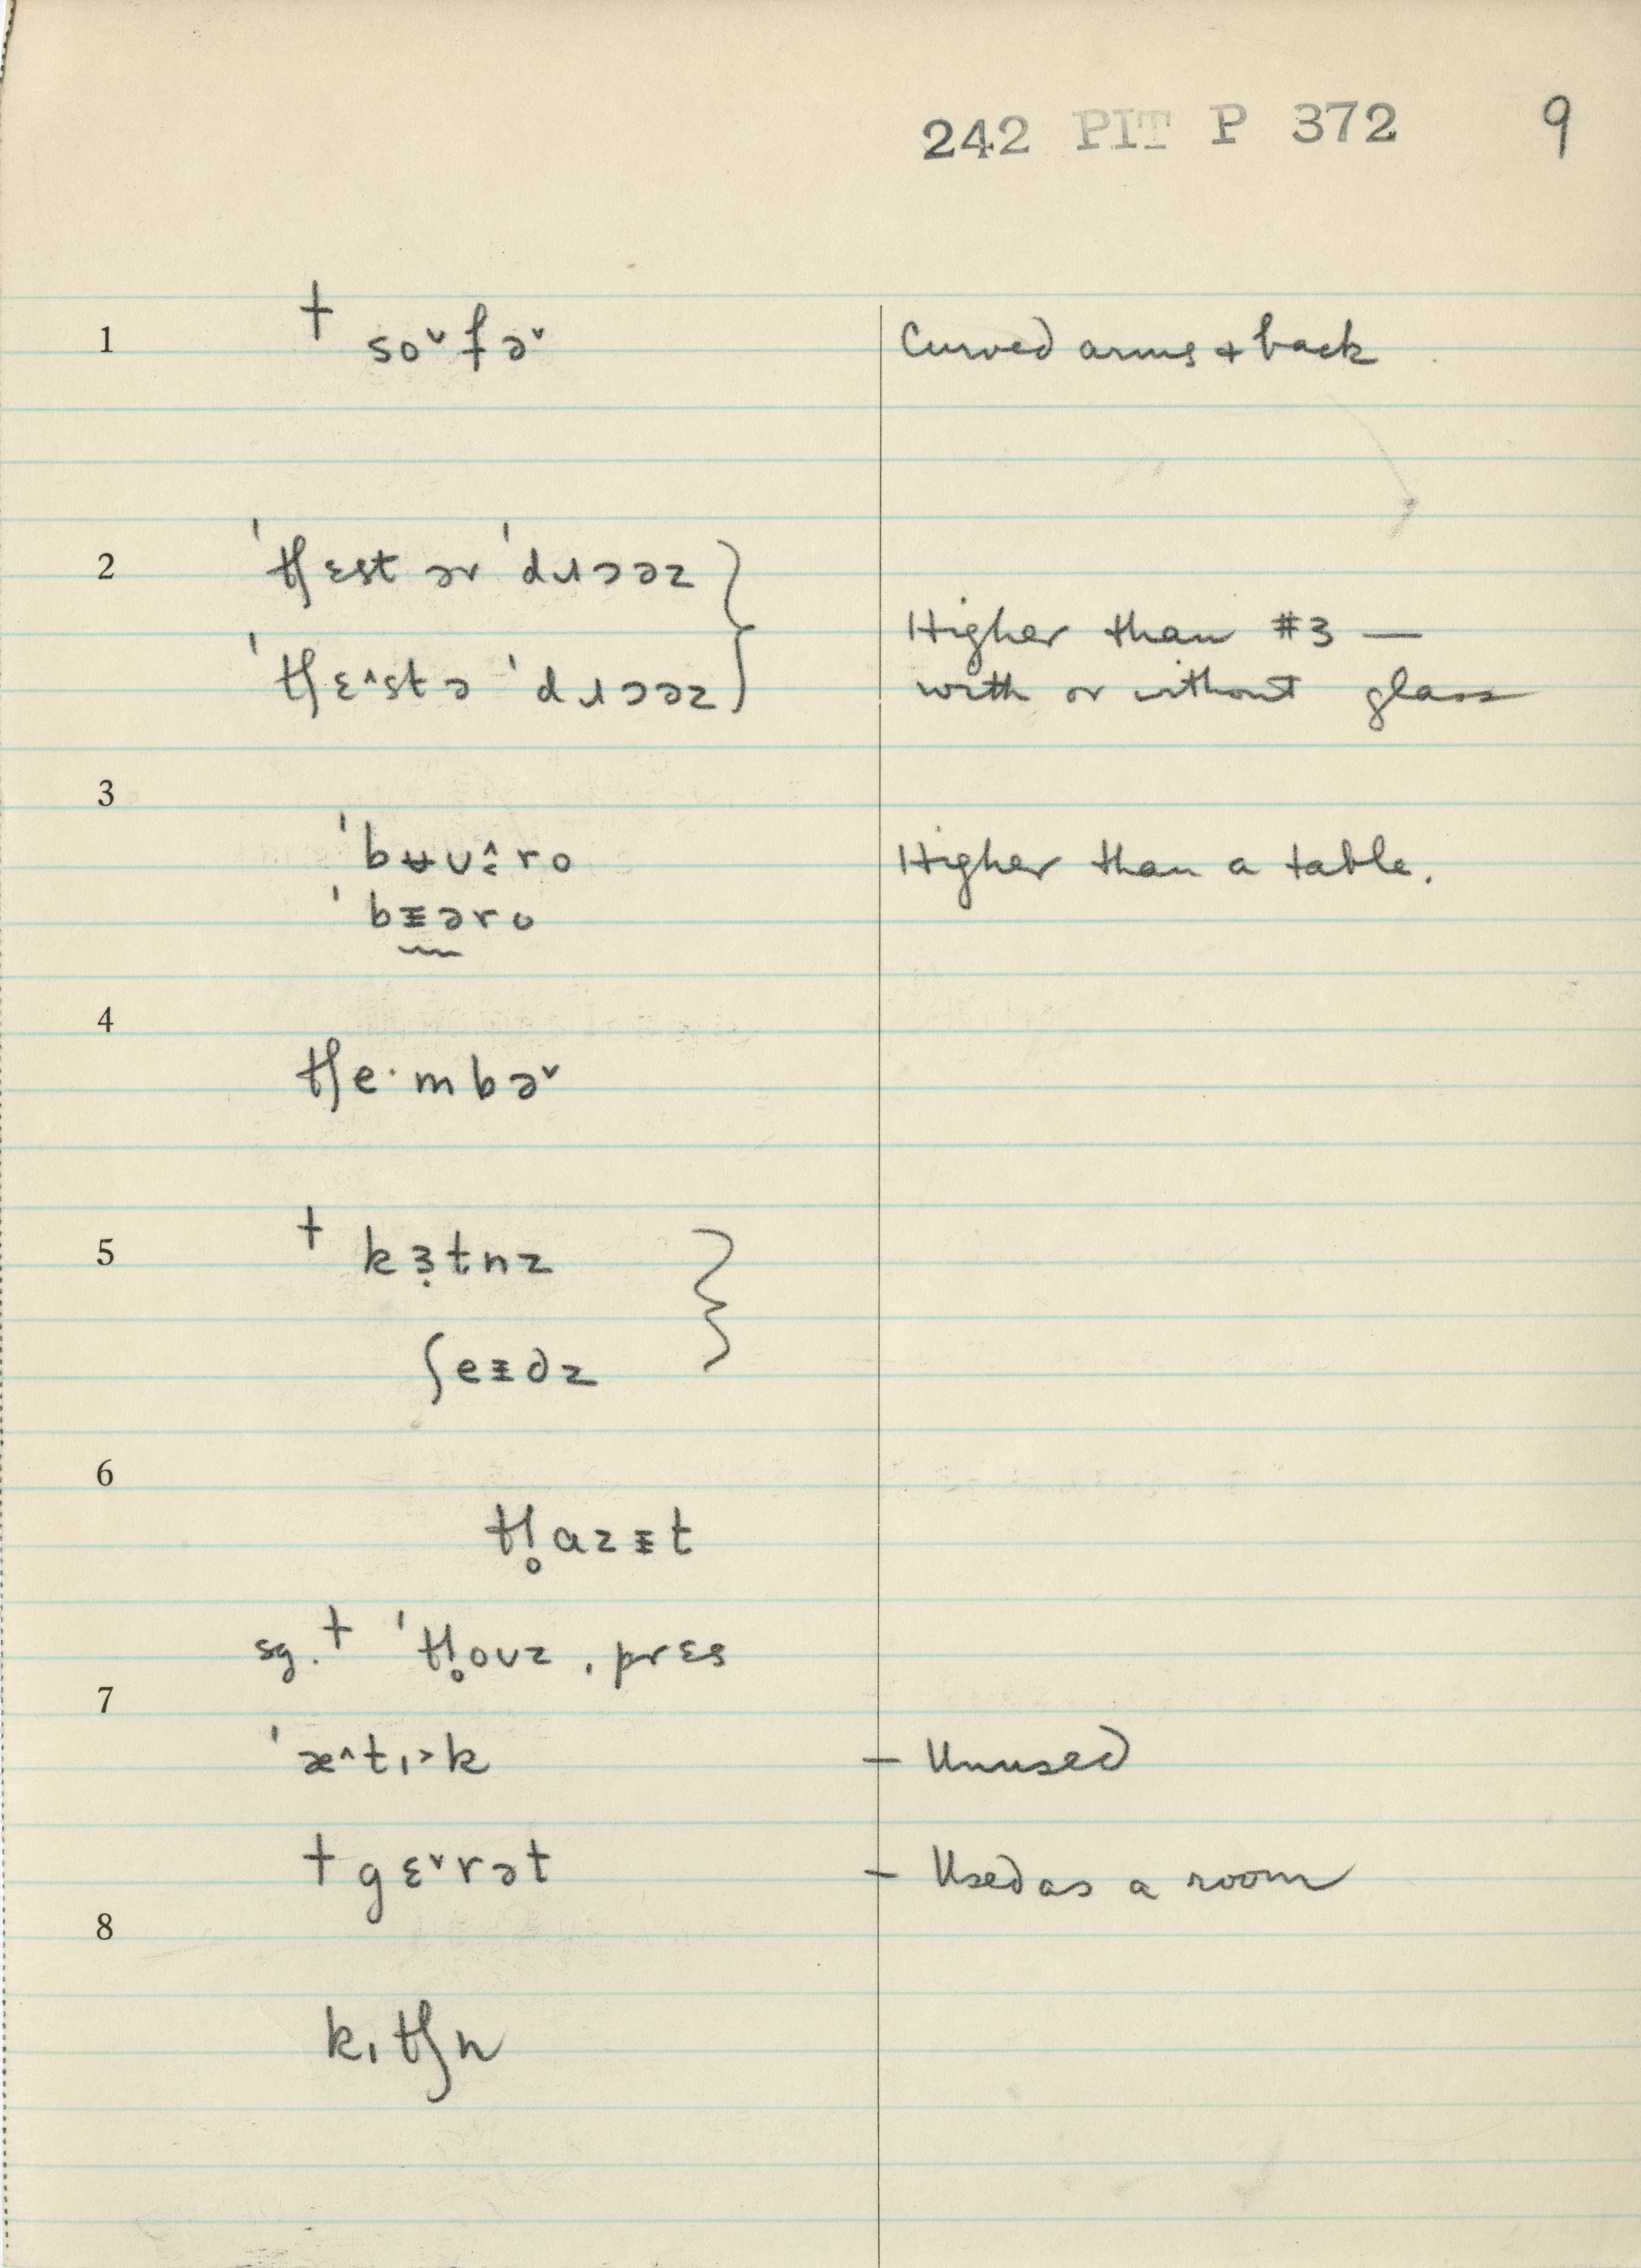 242 PIT P 372 9
1 † so˅fə˅ Curved arms + back
2 ˈtʃɛst ər ˈdɹɔəz }
Higher than #3 —
ˈtʃɛ^stə ˈdɹɔəz } with or without glass
3
ˈbʉʊ:ro Higher than a table.
ˈbɪəro
4
tʃe·mbə˅
5 † kɜ̣tnz }
ʃeɪdz
6
tl̥azɪt
sg. † ˈtl̥oʊz ˌprɛs
7
ˈæ^tɪ˃k — Unused
† gɛ˅rət — Used as a room
8
kɪtʃn